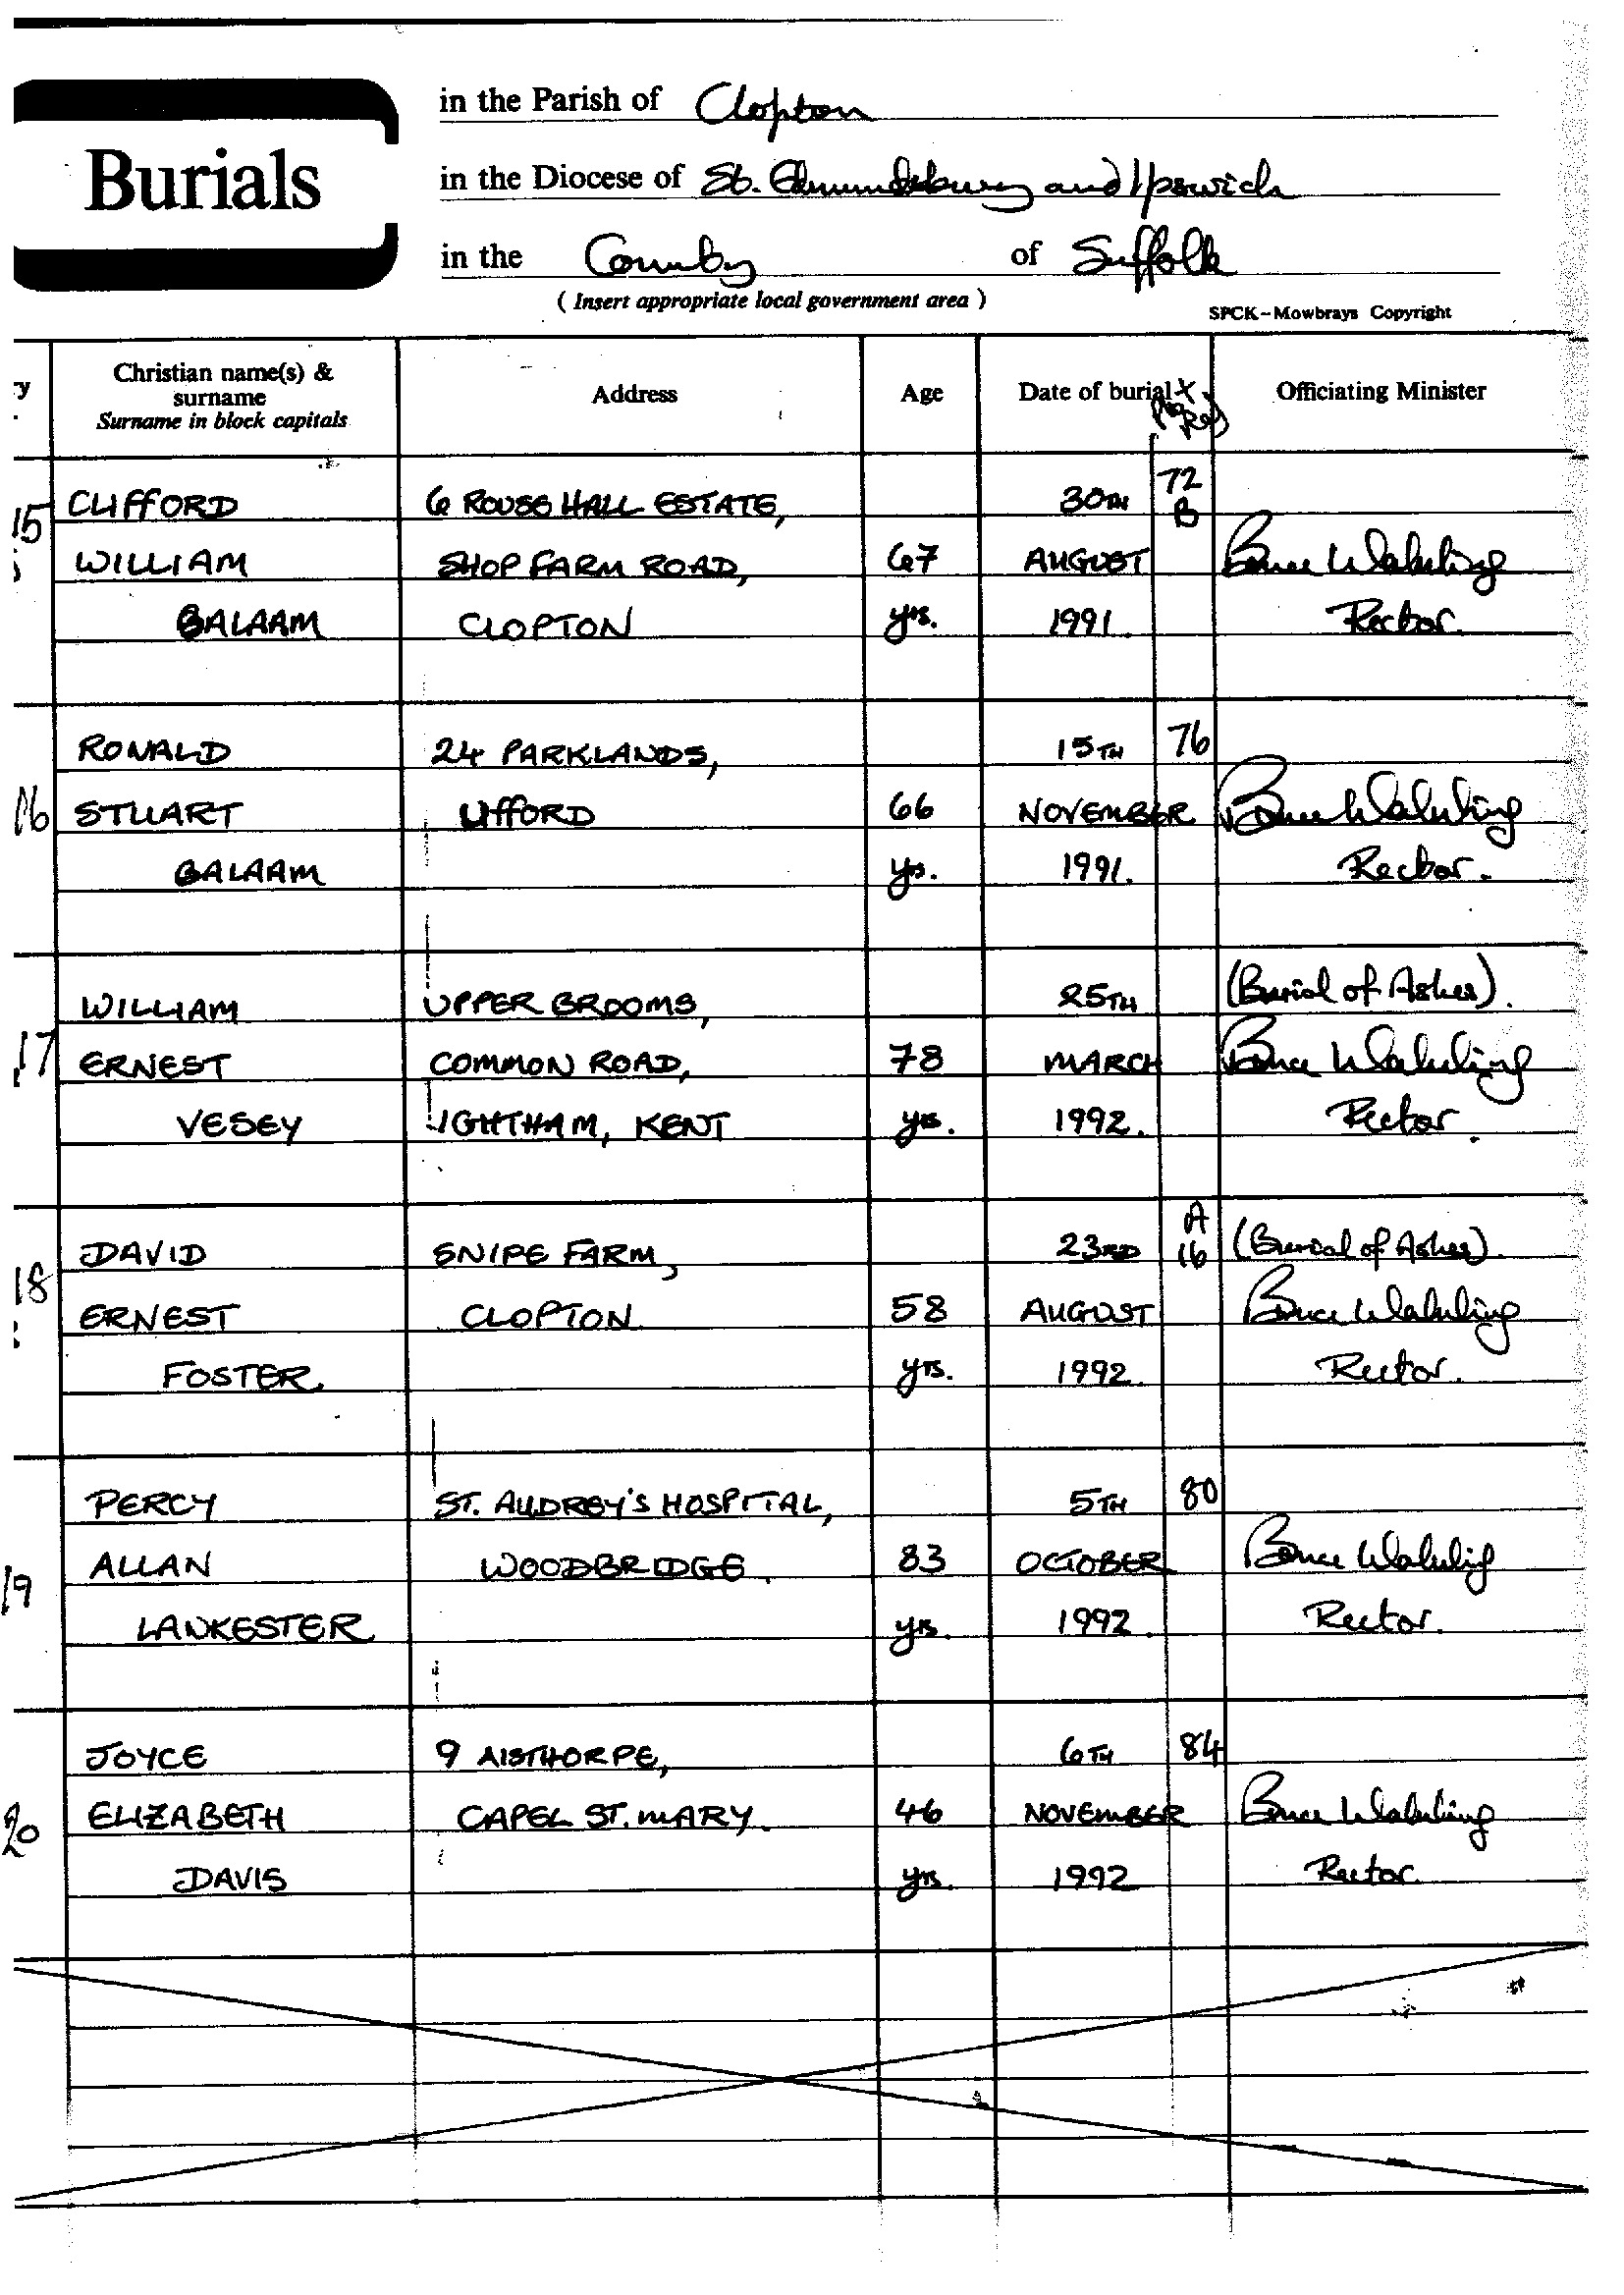 Burials
in the Parish of Clopton
in the Diocese of St. Edmundsbury and Ipswich
in the County of Suffolk
( Insert appropriate local government area )
SPCK-Mowbrays Copyright
y
Christian name(s) &
surname
Surname in block capitals
Address
Age
Date of burial
Officiating Minister
CLIFFORD 6 ROUSE HALL ESTATE, 30TH 72 B
15
WILLIAM SHOP FARM ROAD, 67 AUGUST Bruce Wakeling
BALAAM CLOPTON yrs. 1991. Rector.
RONALD 24 PARKLANDS, 15TH 76
16 STUART UFFORD 66 NOVEMBER Bruce Wakeling
BALAAM yrs. 1991. Rector.
WILLIAM UPPER BROOMS, 25TH (Burial of Ashes).
17 ERNEST COMMON ROAD, 78 MARCH Bruce Wakeling
VESEY IGHTHAM, KENT yrs. 1992. Rector.
DAVID SNIPE FARM, 23RD A 16 (Burial of Ashes).
18 ERNEST CLOPTON 58 AUGUST Bruce Wakeling
FOSTER. yrs. 1992. Rector.
PERCY ST. AUDREY'S HOSPITAL, 5TH 80
19 ALLAN WOODBRIDGE. 83 OCTOBER Bruce Wakeling
LANKESTER yrs. 1992. Rector.
JOYCE 9 AISTHORPE, 6TH 84
20 ELIZABETH CAPEL ST. MARY. 46 NOVEMBER Bruce Wakeling
DAVIS yrs. 1992 Rector.